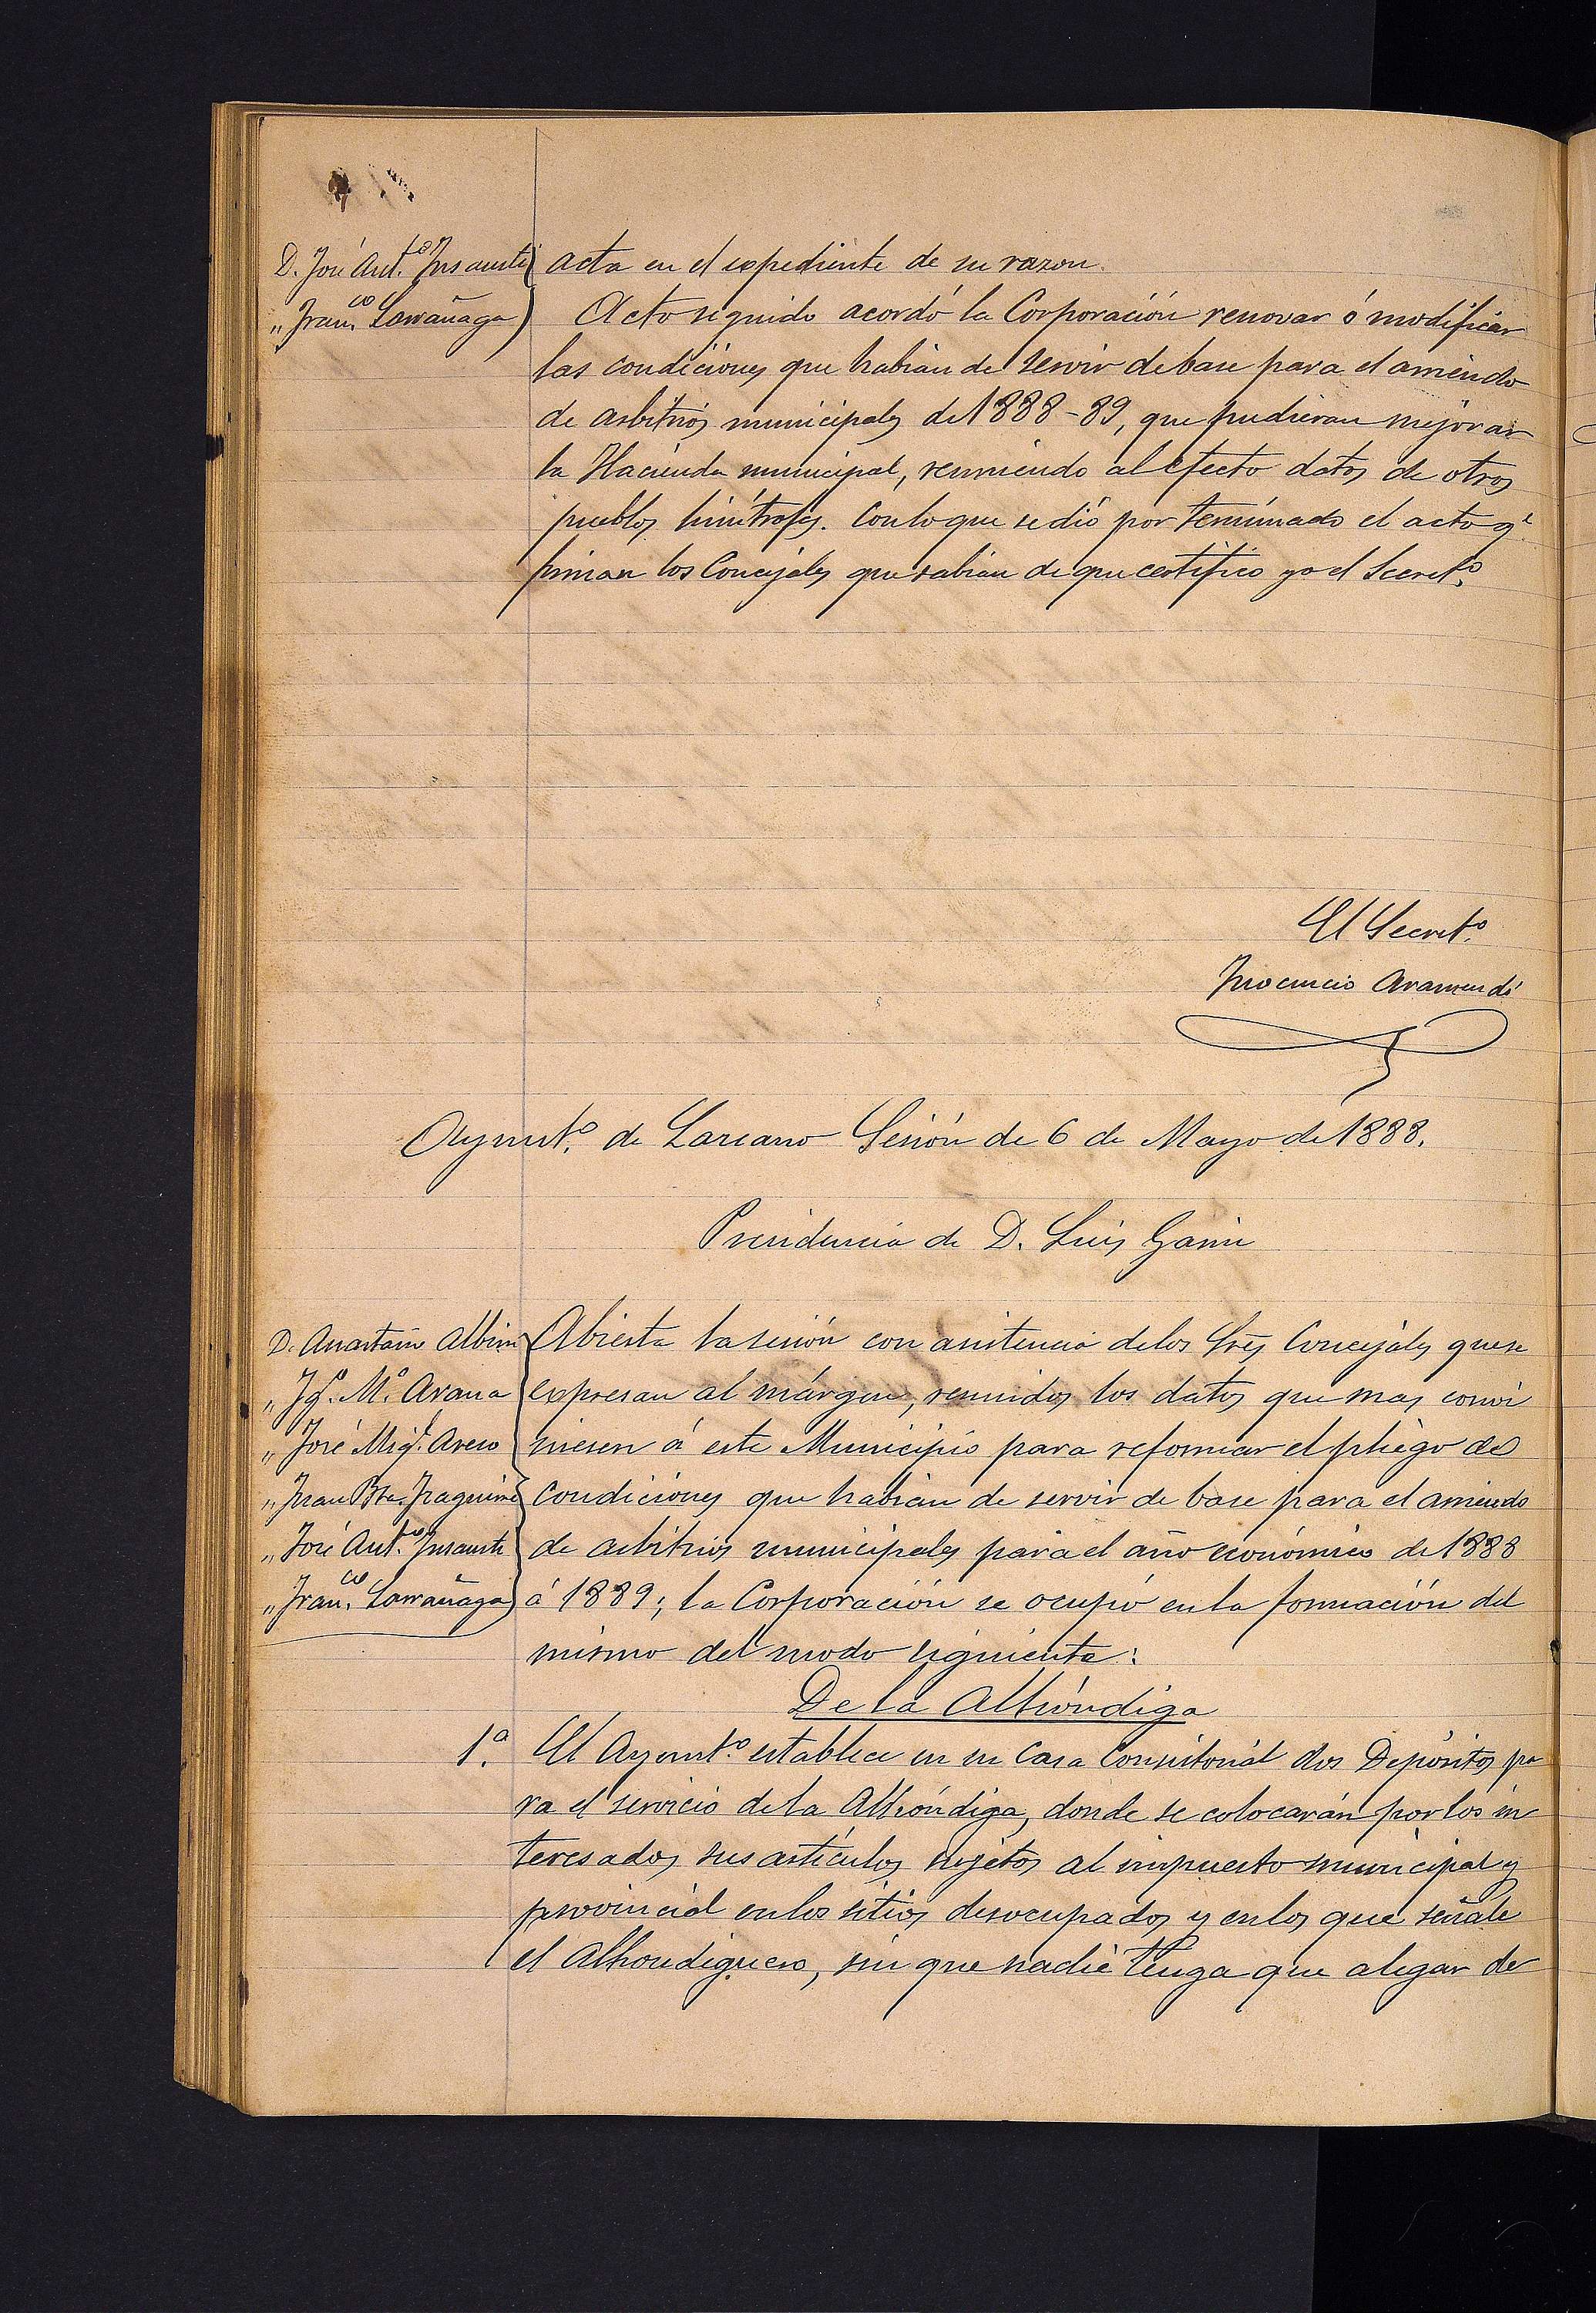 D. José Ant.º Insausti
" Fran.co Larrañaga
acta en el expediente de su razon.
Acto seguido acordó la Corporación renovar ó modificar
las condiciones que habian de servir de base para el arriendo
de arbitrios municipales de 1888-89, que pudieran mejorar
la Hacienda municipal, reuniendo al efecto datos de otros
pueblos limítrofes. Con lo que se dió por terminado el acto q.e
firman los Concejales que sabian de que certifico yo el Secret.º
El Secret.º
Inocencio Aramendi
Aynmt.º de Lazcano Sesión de 6 de Mayo de 1888.
Presidencia de D. Luis Garin
D. Anastasio Albisu
" Jq.º M.ª Arana
" José Mig.l
" Juan Bta.
" José Ant.º Insausti
" Fran.co Larrañaga
Abierta la sesión con asistencia de los Sres Concejales que se
expresan al márgen, reunidos los datos que mas convi
niesen á este Municipio para reformar el pliego de
condiciones que habian de servir de base para el arriendo
de arbitrios municipales para el año económico de 1888
á 1889; la Corporación se ocupó en la formación del
mismo del modo siguiente:
De la Alhóndiga
1.ª El Ayunt.º establece en su Casa Consistorial dos Depósitos pa
ra el servicio de la Alhóndiga, donde se colocarán por los in
teresados sus artículos sujetos al impuesto municipal y
provincial en los sitios desocupados y en los que señale
el Alhondiguero, sin que nadie tenga que alegar de